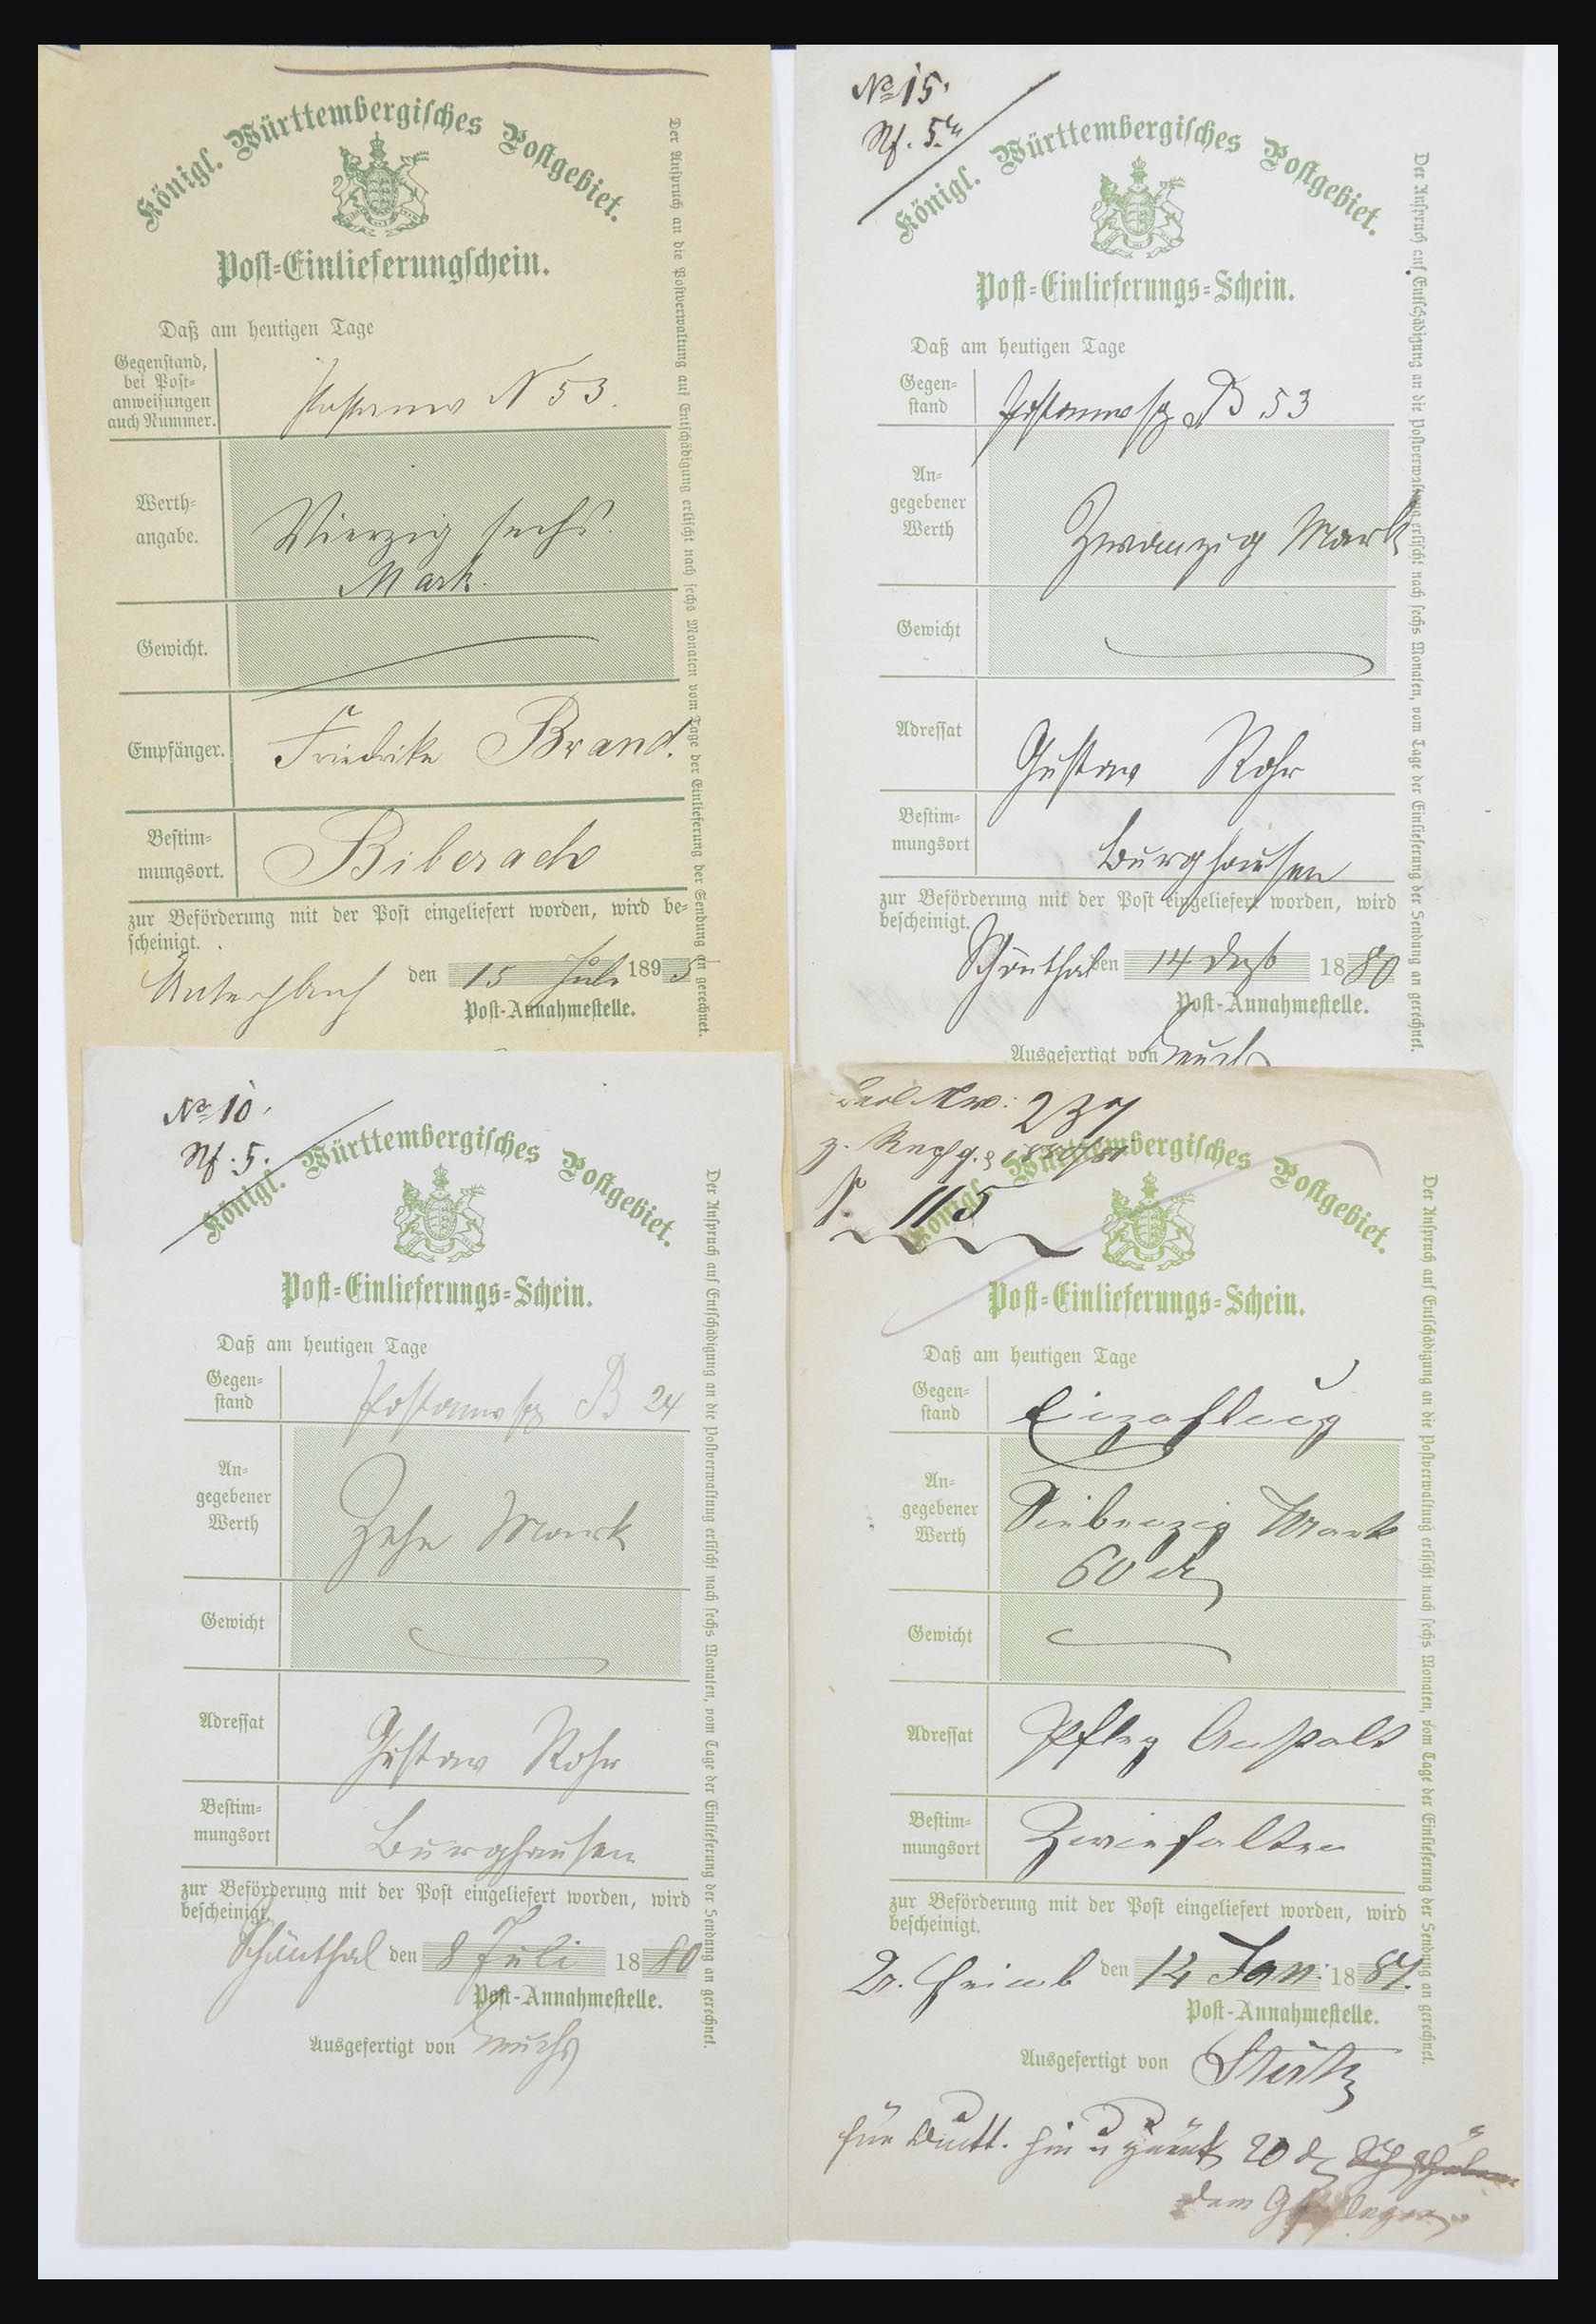 Königl. Württembergisches Postgebiet.
Post-Einlieferungschein.
Daß am heutigen Tage
Gegenstand,
bei Post-
anweisungen
auch Nummer.
N 53.
Werth-
angabe.
Vierzig sechs
Mark.
Gewicht.
Empfänger.
Friedrike Brand.
Bestim-
mungsort.
Biberach
zur Beförderung mit der Post eingeliefert worden, wird be-
scheinigt.
den 15 Juli 1895
Post-Annahmestelle.
Der Anspruch an die Postverwaltung auf Entschädigung erlischt nach sechs Monaten vom Tage der Einlieferung der Sendung an gerechnet.
No 15.
Königl. Württembergisches Postgebiet.
Post-Einlieferungs-Schein.
Daß am heutigen Tage
Gegen-
stand
Postanwsg B 53
An-
gegebener
Werth
Zwanzig Mark
Gewicht
Adressat
Gustav Rohr
Bestim-
mungsort
Burghausen
zur Beförderung mit der Post eingeliefert worden, wird
bescheinigt.
Schönthal den 14 Dezb 1880
Post-Annahmestelle.
Ausgefertigt von
Der Anspruch auf Entschädigung an die Postverwaltung erlischt nach sechs Monaten, vom Tage der Einlieferung der Sendung an gerechnet.
No 10.
Königl. Württembergisches Postgebiet.
Post-Einlieferungs-Schein.
Daß am heutigen Tage
Gegen-
stand
Postanwsg B 24
An-
gegebener
Werth
Zehn Mark
Gewicht
Adressat
Gustav Rohr
Bestim-
mungsort
Burghausen
zur Beförderung mit der Post eingeliefert worden, wird
bescheinigt.
Schönthal den 8 Juli 1880
Post-Annahmestelle.
Ausgefertigt von
Der Anspruch auf Entschädigung an die Postverwaltung erlischt nach sechs Monaten, vom Tage der Einlieferung der Sendung an gerechnet.
237
115
Königl. Württembergisches Postgebiet.
Post-Einlieferungs-Schein.
Daß am heutigen Tage
Gegen-
stand
Einzahlung
An-
gegebener
Werth
Siebenzig Mark
60
Gewicht
Adressat
Pfleg Anstalt
Bestim-
mungsort
Zwiefalten
zur Beförderung mit der Post eingeliefert worden, wird
bescheinigt.
den 12 Jan. 1881.
Post-Annahmestelle.
Ausgefertigt von
für hin u zurück 20
dem
Der Anspruch auf Entschädigung an die Postverwaltung erlischt nach sechs Monaten, vom Tage der Einlieferung der Sendung an gerechnet.